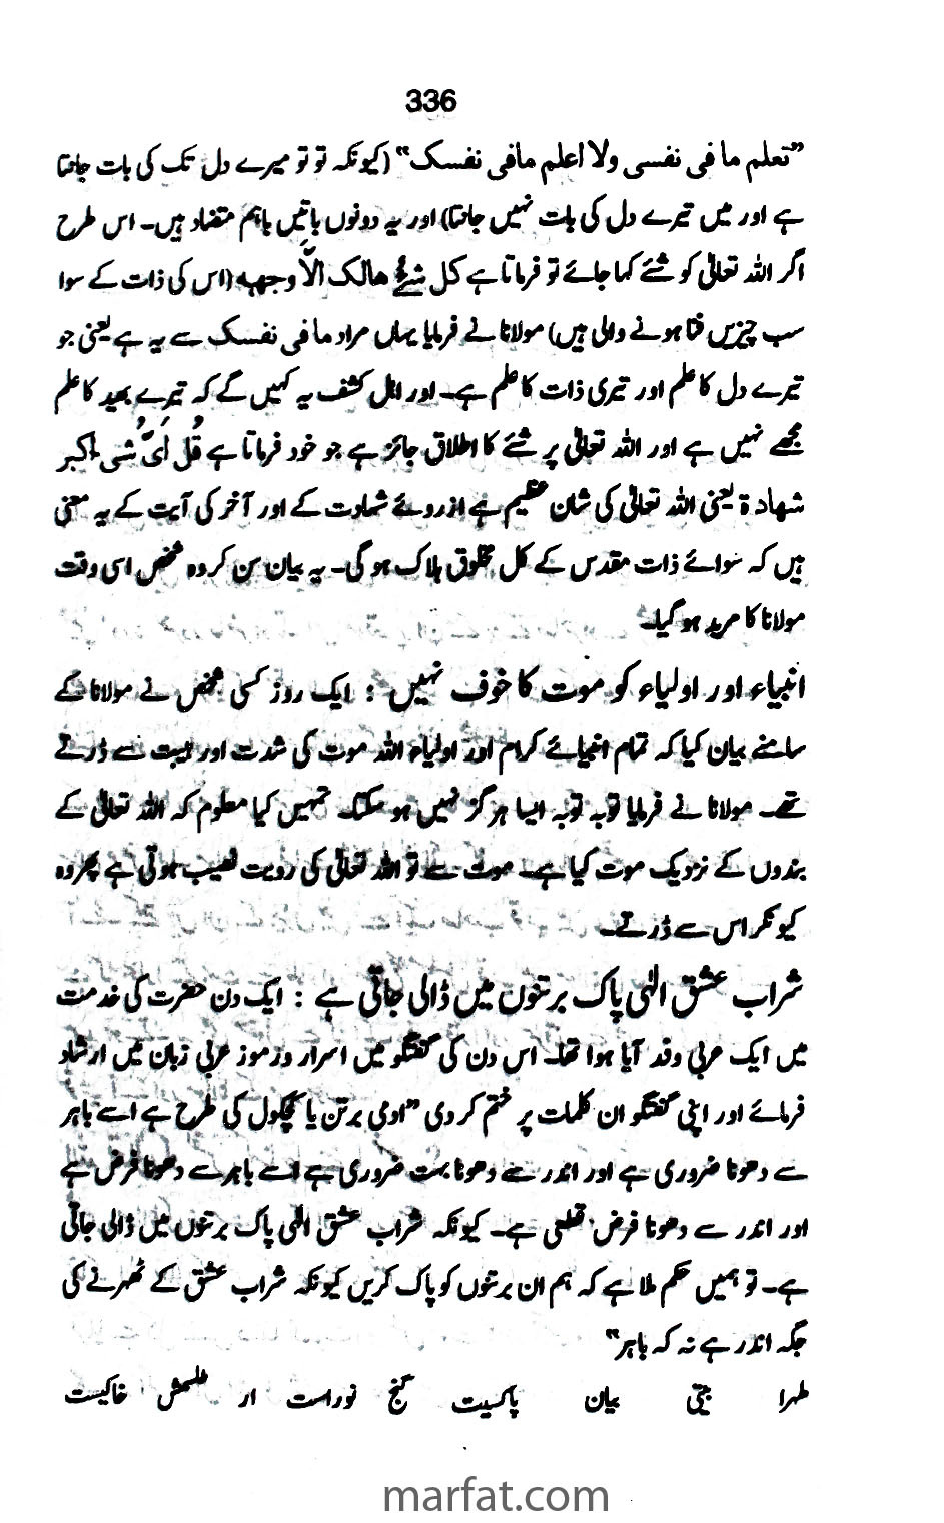 336
”تعلم ما فی نفسی ولا اعلم مافی نفسک“ (کیونکہ تو تو میرے دل تک کی بات جانتا
ہے اور میں تیرے دل کی بات نہیں جانتا) اور یہ دونوں باتیں باہم متضاد ہیں۔ اس طرح
اگر اللہ تعالیٰ کو شئے کہا جائے تو فرماتا ہے کل شیٔ ھالک الاّ وجھہ (اس کی ذات کے سوا
سب چیزیں فنا ہونے والی ہیں) مولانا نے فرمایا یہاں مراد ما فی نفسک سے یہ ہے یعنی جو
تیرے دل کا علم اور تیری ذات کا علم ہے۔ اور اہل کشف یہ کہیں گے کہ تیرے بھید کا علم
مجھے نہیں ہے اور اللہ تعالیٰ پر شئے کا اطلاق جائز ہے جو خود فرماتا ہے قُل اَیُّ شی اکبر
شھادۃ یعنی اللہ تعالیٰ کی شان عظیم ہے ازروئے شہادت کے اور آخر کی آیت کے یہ معنی
ہیں کہ سوائے ذات مقدس کے کل مخلوق ہلاک ہو گی۔ یہ بیان سن کر وہ شخص اسی وقت
مولانا کا مرید ہو گیا۔
انبیاء اور اولیاء کو موت کا خوف نہیں : ایک روز کسی شخص نے مولانا کے
سامنے بیان کیا کہ تمام انبیائے کرام اور اولیاء اللہ موت کی شدت اور ہیبت سے ڈرتے
تھے۔ مولانا نے فرمایا توبہ توبہ ایسا ہرگز نہیں ہو سکتا۔ تمہیں کیا معلوم کہ اللہ تعالیٰ کے
بندوں کے نزدیک موت کیا ہے۔ موت سے تو اللہ تعالیٰ کی رویت نصیب ہوتی ہے پھر وہ
کیونکر اس سے ڈرتے۔
شراب عشق الٰہی پاک برتنوں میں ڈالی جاتی ہے : ایک دن حضرت کی خدمت
میں ایک عربی وفد آیا ہوا تھا۔ اس دن کی گفتگو میں اسرار و رموز عربی زبان میں ارشاد
فرمائے اور اپنی گفتگو ان کلمات پر ختم کر دی ”ادمی برتن یا کچکول کی طرح ہے اسے باہر
سے دھونا ضروری ہے اور اندر سے دھونا بہت ضروری ہے اسے باہر سے دھونا فرض ہے
اور اندر سے دھونا فرض قطعی ہے۔ کیونکہ شراب عشق الٰہی پاک برتنوں میں ڈالی جاتی
ہے۔ تو ہمیں حکم ملا ہے کہ ہم ان برتنوں کو پاک کریں کیونکہ شراب عشق کے ٹھہرنے کی
جگہ اندر ہے نہ کہ باہر“
طہرا بیتی بیان پاکیست گنج نوراست ار طلمش خاکیست
marfat.com